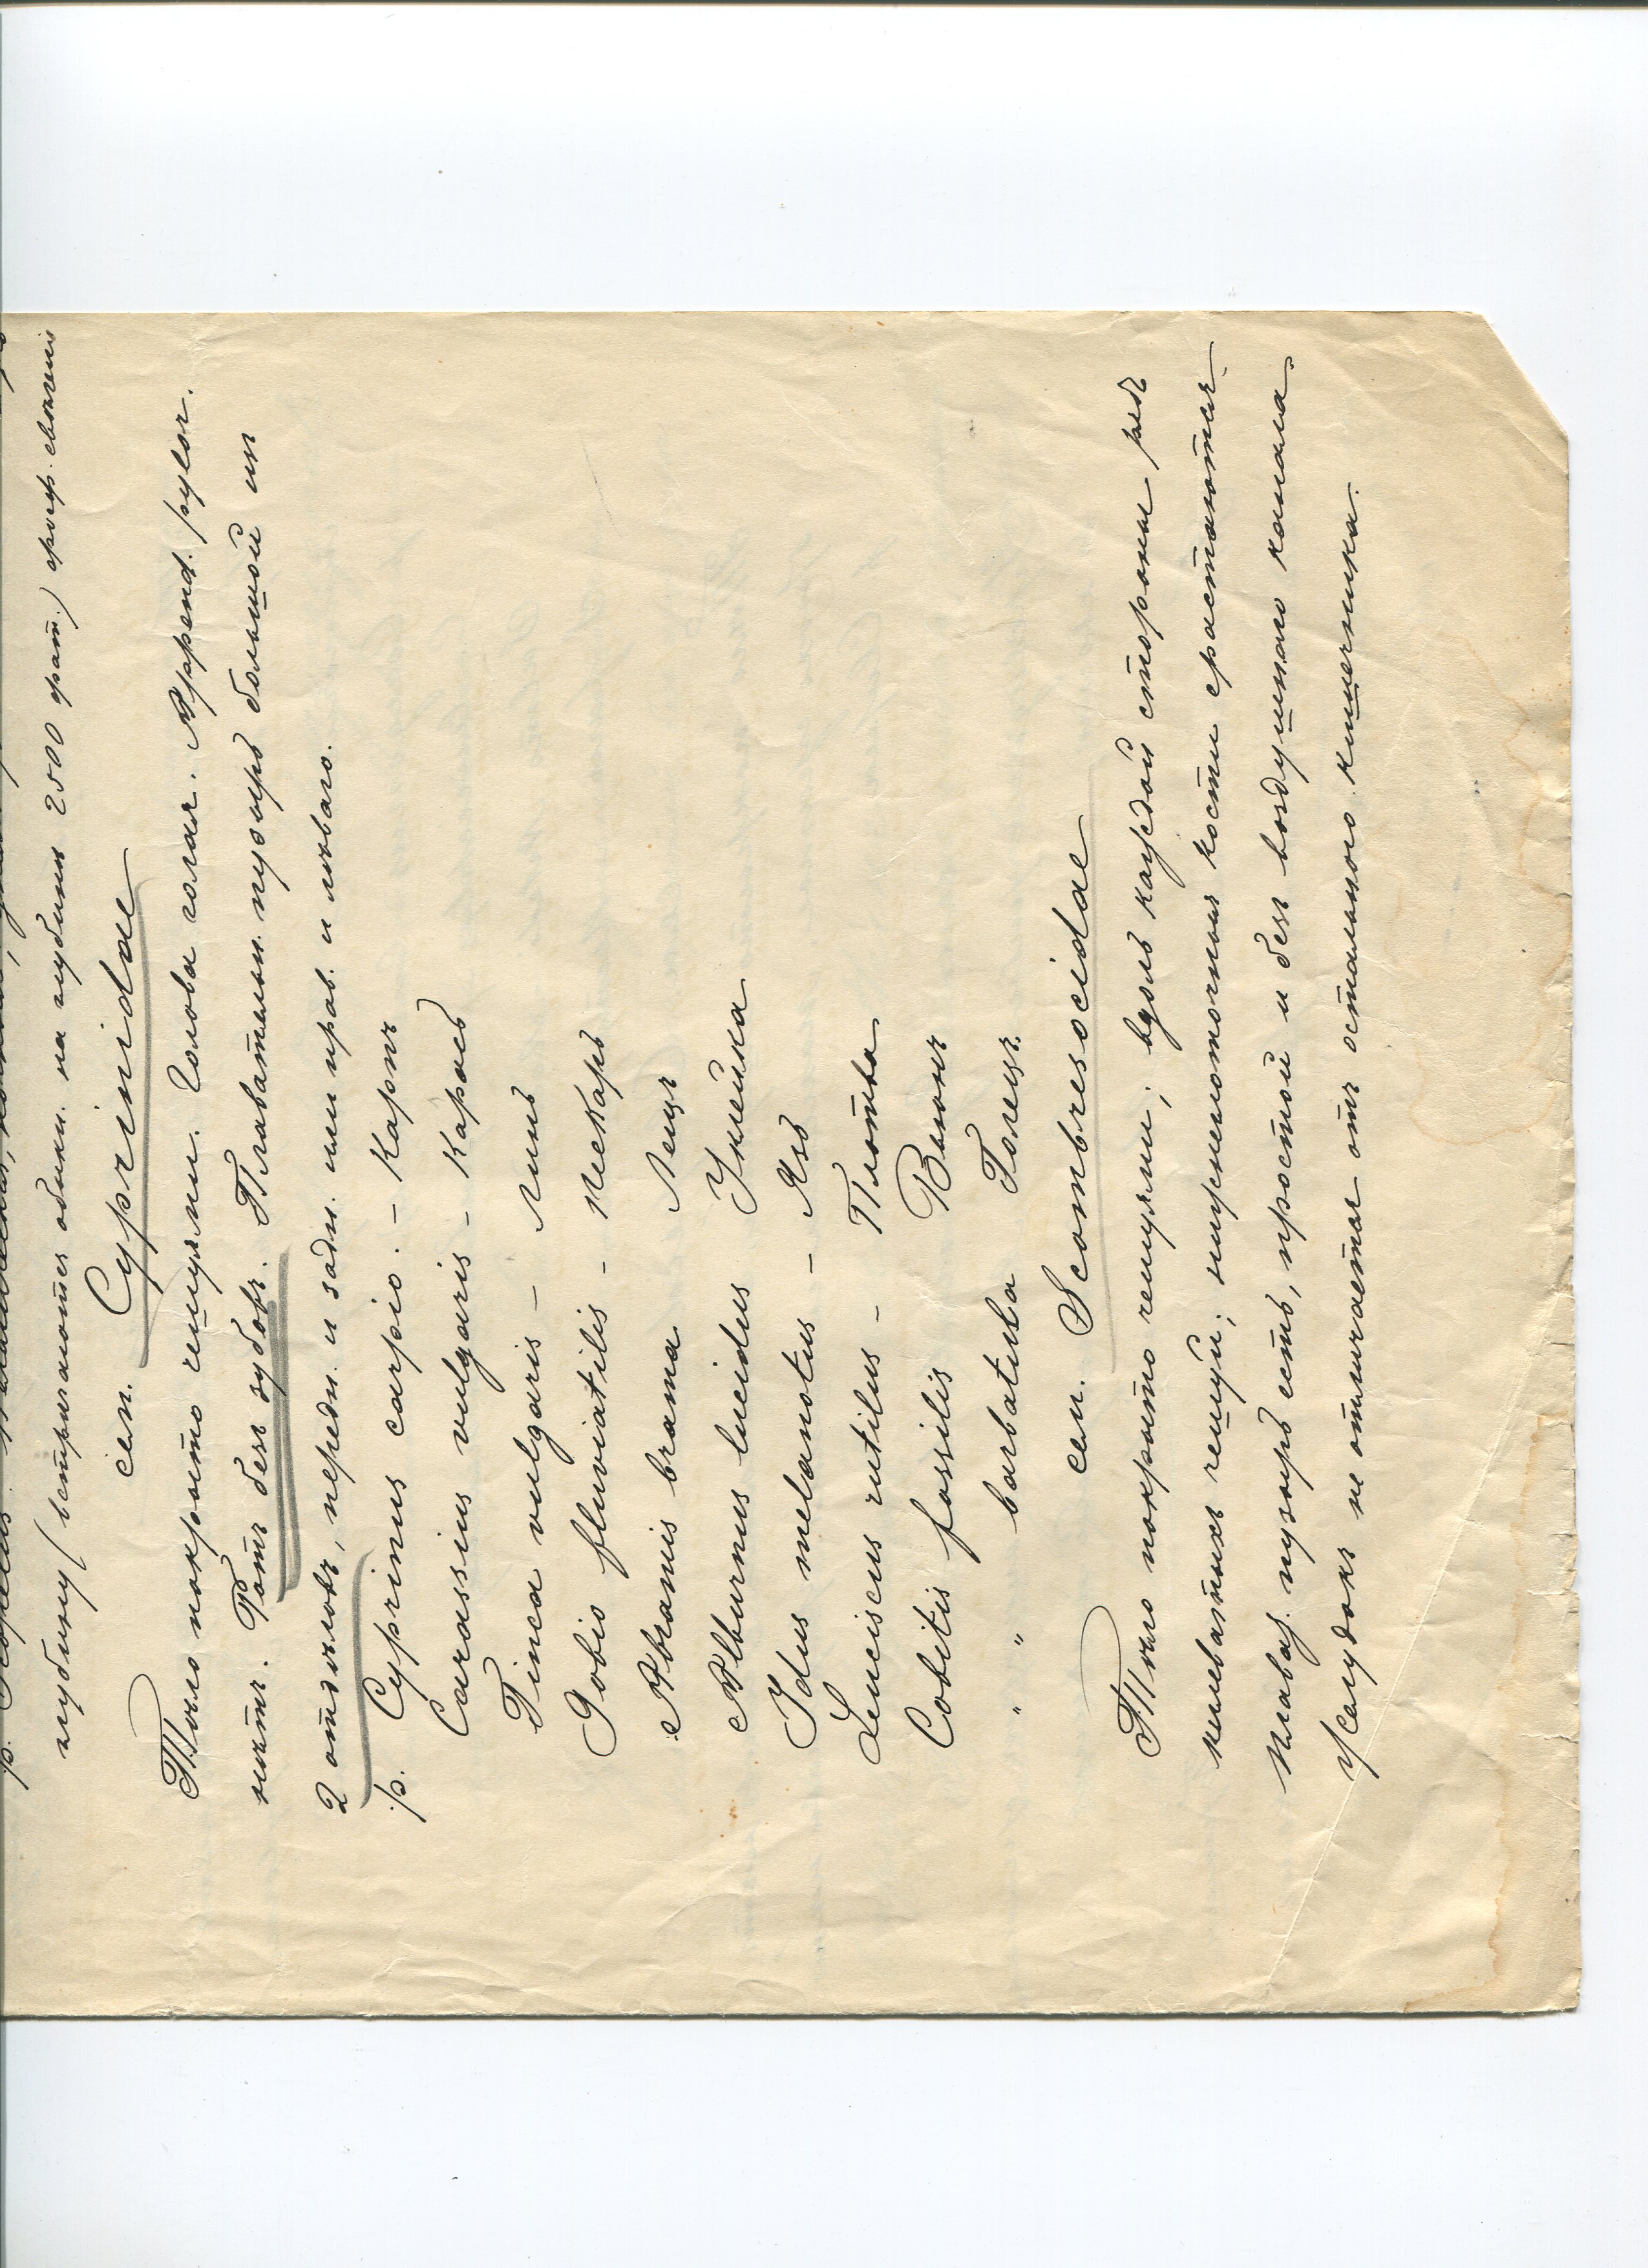 р. Scopelus
глубину (встрѣчаются обыкн. на глубинѣ 2500 фат.) фосф. свѣченіе
сем. Cyprinidae
Тѣло покрыто чешуями. Голова голая. Append. pylor.
нѣтъ. Ротъ безъ зубовъ. Плавательн. пузырь большой из
2 отдѣловъ, передн. и задн. или прав. и лѣваго.
р. Cyprinus carpio. – Карпъ
Carassius vulgaris – Карась
Tinca vulgaris – Линь
Gobio fluviatilis – Пескарь
Abramis brama Лещъ
Alburnus lucidus Уклейка
Idus melanotus – Язь
Leuciscus rutilus – Плотва
Cobitis fossilis Вьюнъ
" " barbatula Голецъ.
сем. Scombresocidae
Тѣло покрыто чешуями; вдоль каждой стороны рядъ
килеватыхъ чешуй; нижнеглоточныя кости срастаются.
Плават. пузырь есть, простой и безъ воздушнаго канала.
Желудокъ не отличается отъ остальнаго кишечника.